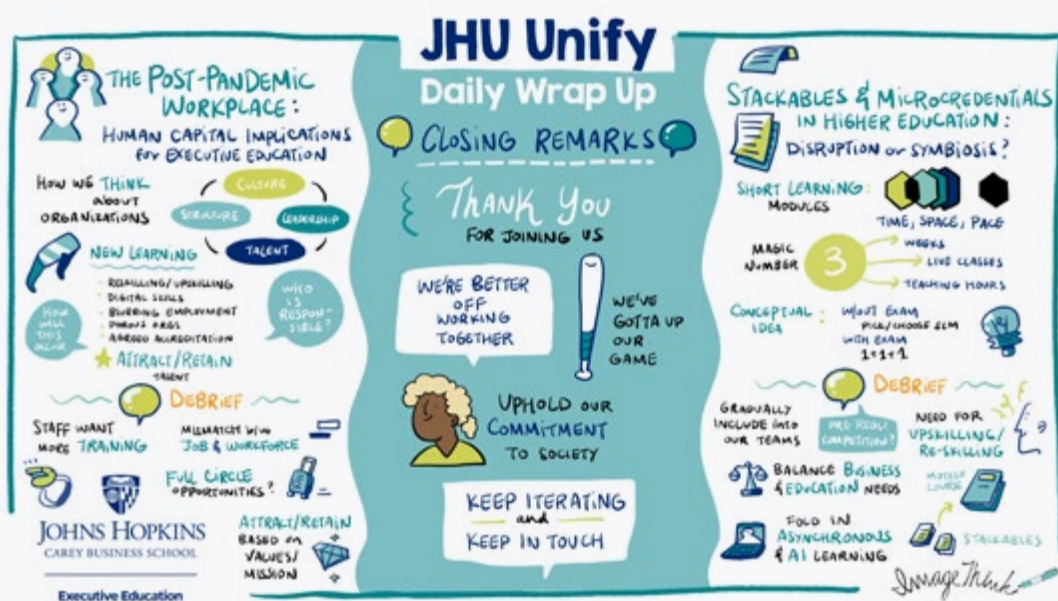 JHU Unify
Daily Wrap Up
THE POST-PANDEMIC
WORKPLACE:
HUMAN CAPITAL IMPLICATIONS
for EXECUTIVE EDUCATION
HOW WE THINK
about
ORGANIZATIONS
CULTURE
STRUCTURE
LEADERSHIP
TALENT
NEW LEARNING
RESKILLING/UPSKILLING
DIGITAL SKILLS
BLURRING EMPLOYMENT
POROUS ORGS
AGREED ACCREDITATION
HOW
WILL
THIS
OCCUR
WHO
IS
RESPON-
SIBLE?
ATTRACT/RETAIN
TALENT
DEBRIEF
STAFF WANT
MORE TRAINING
MISMATCH
JOB & WORKFORCE
FULL CIRCLE
OPPORTUNITIES?
JOHNS HOPKINS
CAREY BUSINESS SCHOOL
Executive Education
ATTRACT/RETAIN
BASED ON
VALUES/
MISSION
CLOSING REMARKS
THANK YOU
FOR JOINING US
WE'RE BETTER
OFF
WORKING
TOGETHER
WE'VE
GOTTA UP
OUR
GAME
UPHOLD OUR
COMMITMENT
TO SOCIETY
KEEP ITERATING
and
KEEP IN TOUCH
STACKABLES & MICROCREDENTIALS
IN HIGHER EDUCATION:
DISRUPTION or SYMBIOSIS?
SHORT LEARNING:
MODULES
TIME, SPACE, PACE
MAGIC
NUMBER
3
WEEKS
LIVE CLASSES
TEACHING HOURS
CONCEPTUAL
IDEA
:
W/OUT EXAM
PICK/CHOOSE
WITH EXAM
1+1+1
DEBRIEF
GRADUALLY
INCLUDE INTO
OUR TEAMS
COMPETITION?
NEED FOR
UPSKILLING/
RE-SKILLING
BALANCE BUSINESS
& EDUCATION NEEDS
COURSE
FOLD IN
ASYNCHRONOUS
& AI LEARNING
STACKABLES
ImageThink